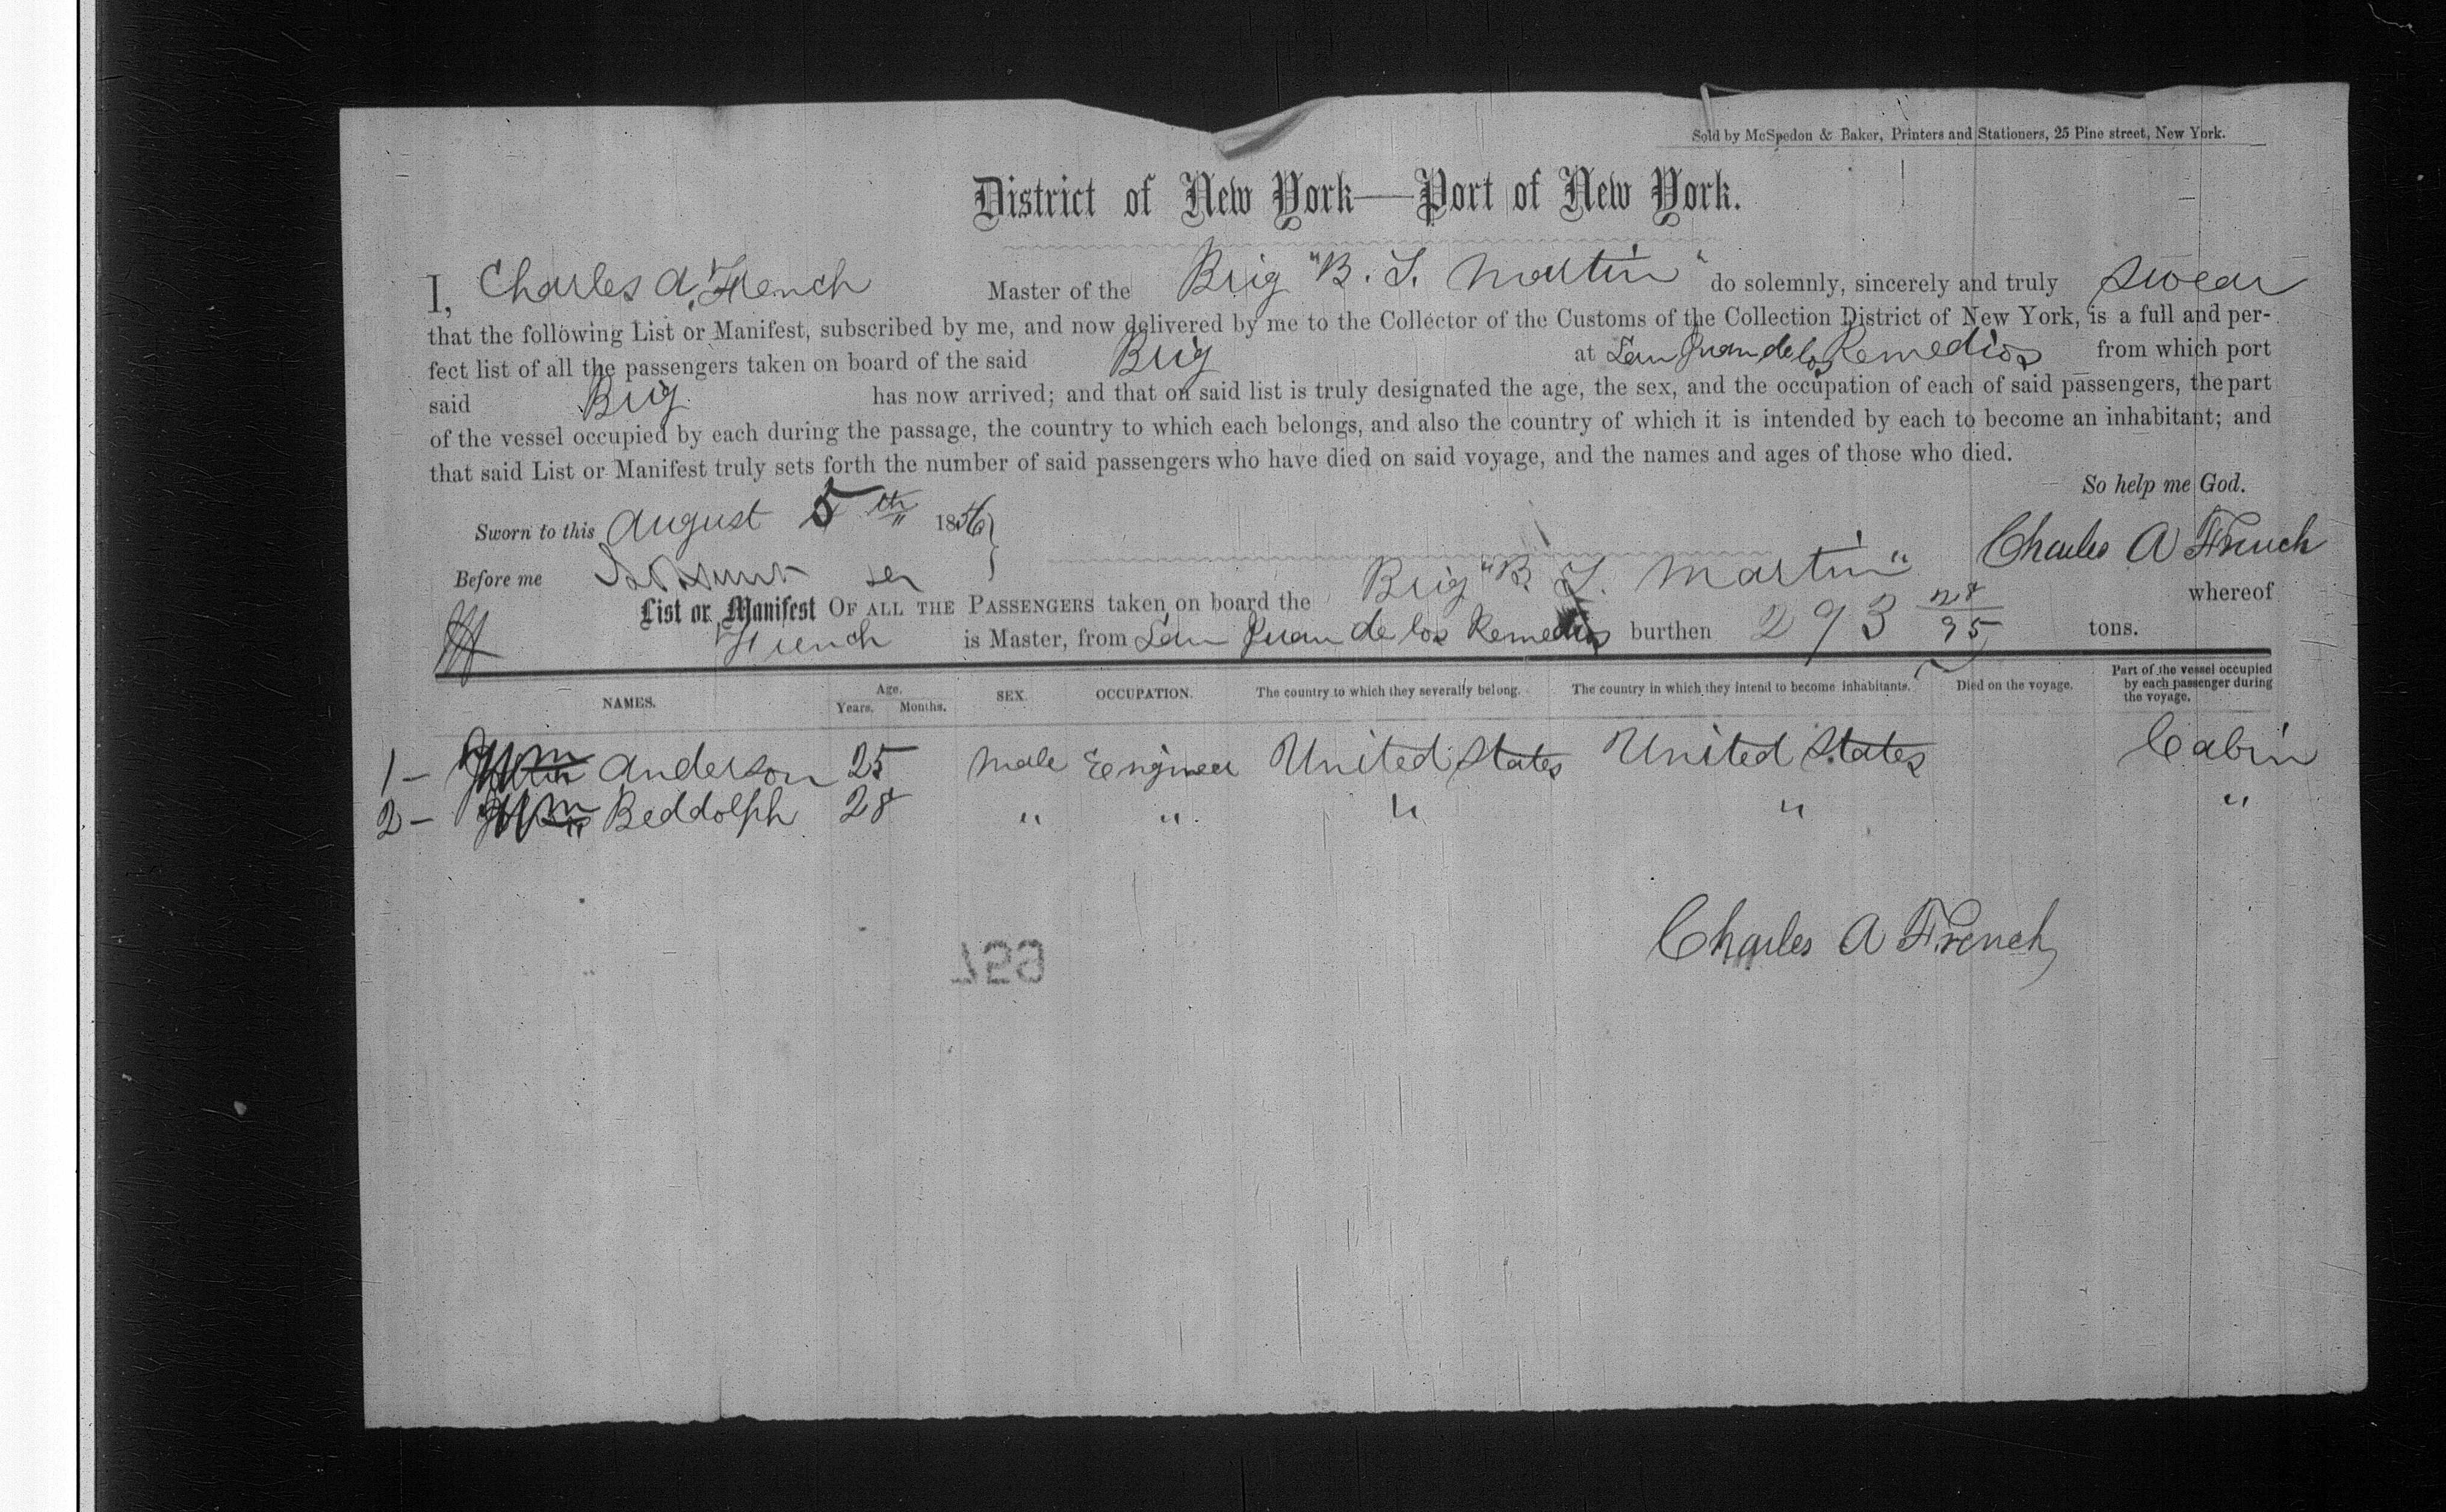 Sold by McSpedon & Baker, Printers and Stationers, 25 Pine street, New York.
District of New York—Port of New York.
I, Charles A. French Master of the Brig "B. T. Martin" do solemnly, sincerely and truly swear
that the following List or Manifest, subscribed by me, and now delivered by me to the Collector of the Customs of the Collection District of New York, is a full and per-
fect list of all the passengers taken on board of the said Brig at San Juan de los Remedios from which port
said Brig has now arrived; and that on said list is truly designated the age, the sex, and the occupation of each of said passengers, the part
of the vessel occupied by each during the passage, the country to which each belongs, and also the country of which it is intended by each to become an inhabitant; and
that said List or Manifest truly sets forth the number of said passengers who have died on said voyage, and the names and ages of those who died.
So help me God.
Sworn to this August 5th 1856
Charles A French
Before me
List or Manifest OF ALL THE PASSENGERS taken on board the Brig "B. T. Martin" whereof
French is Master, from San Juan de los Remedios burthen 293 28/95 tons.
NAMES. Age. Years. Months. SEX. OCCUPATION. The country to which they severally belong. The country in which they intend to become inhabitants. Died on the voyage. Part of the vessel occupied by each passenger during the voyage.
1 – Wm Anderson 25 Male Eengineer United States United States Cabin
2 – Wm Beddolph 28 " " " " "
Charles A French
657